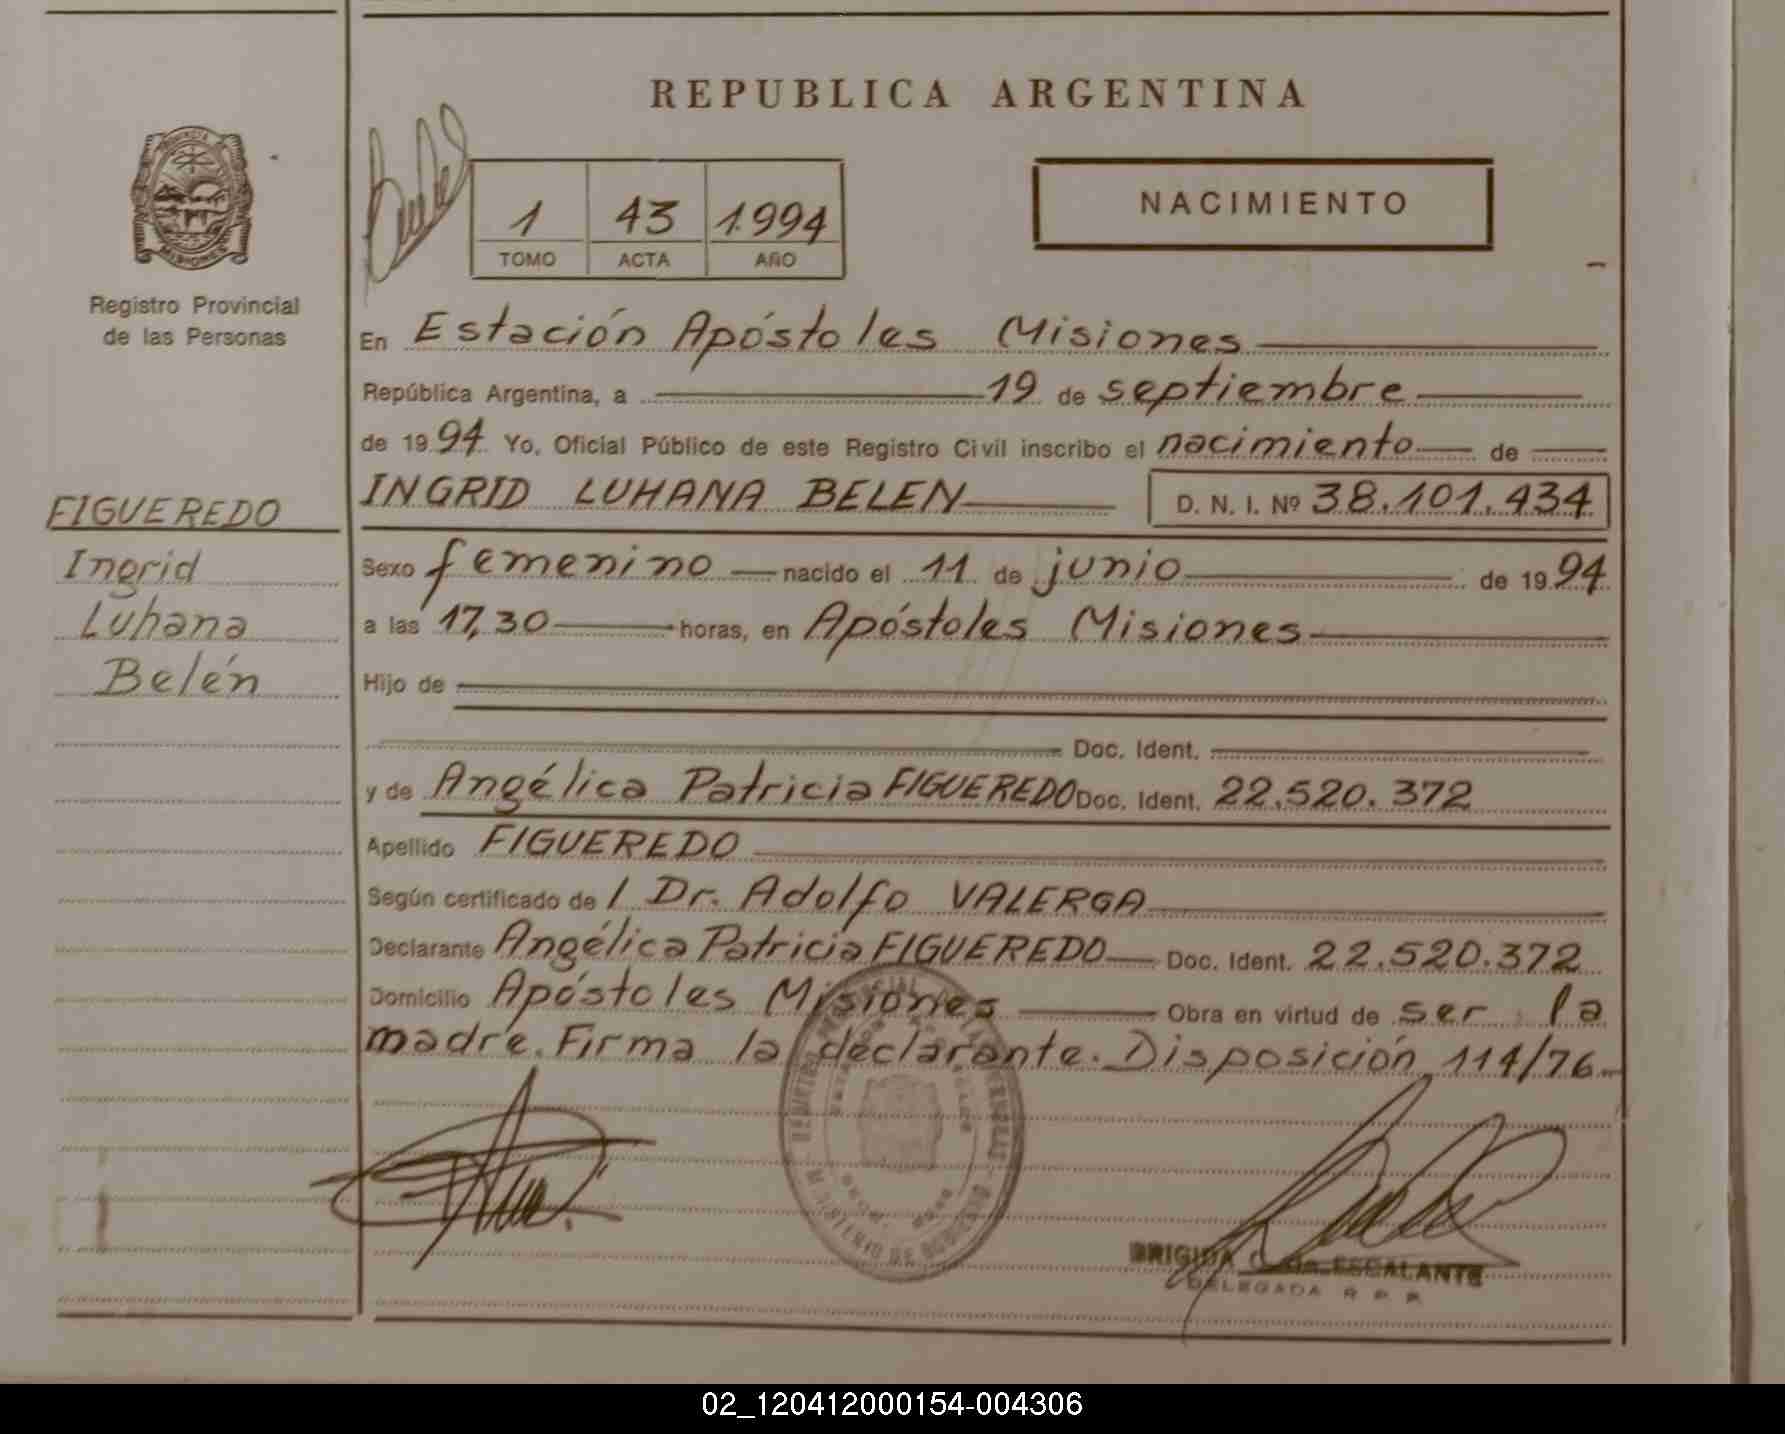 REPUBLICA ARGENTINA
NACIMIENTO
1 43 1.994
TOMO ACTA AÑO
MISIONES
Registro Provincial
de las Personas
FIGUEREDO
Ingrid
Luhana
Belén
En Estación Apóstoles Misiones
República Argentina, a 19 de septiembre
de 19 94 Yo, Oficial Público de este Registro Civil inscribo el nacimiento de
INGRID LUHANA BELEN D. N. I. Nº 38.101.434
Sexo femenino nacido el 11 de junio de 19 94
a las 17,30 horas, en Apóstoles Misiones
Hijo de
Doc. Ident.
y de Angélica Patricia FIGUEREDO Doc. Ident. 22.520.372
Apellido FIGUEREDO
Según certificado de / Dr. Adolfo VALERGA
Declarante Angélica Patricia FIGUEREDO Doc. Ident. 22.520.372
Domicilio Apóstoles Misiones Obra en virtud de ser la
madre. Firma la declarante. Disposición 114/76
BRIGIDA ESCALANTE
DELEGADA R P P
02_120412000154-004306